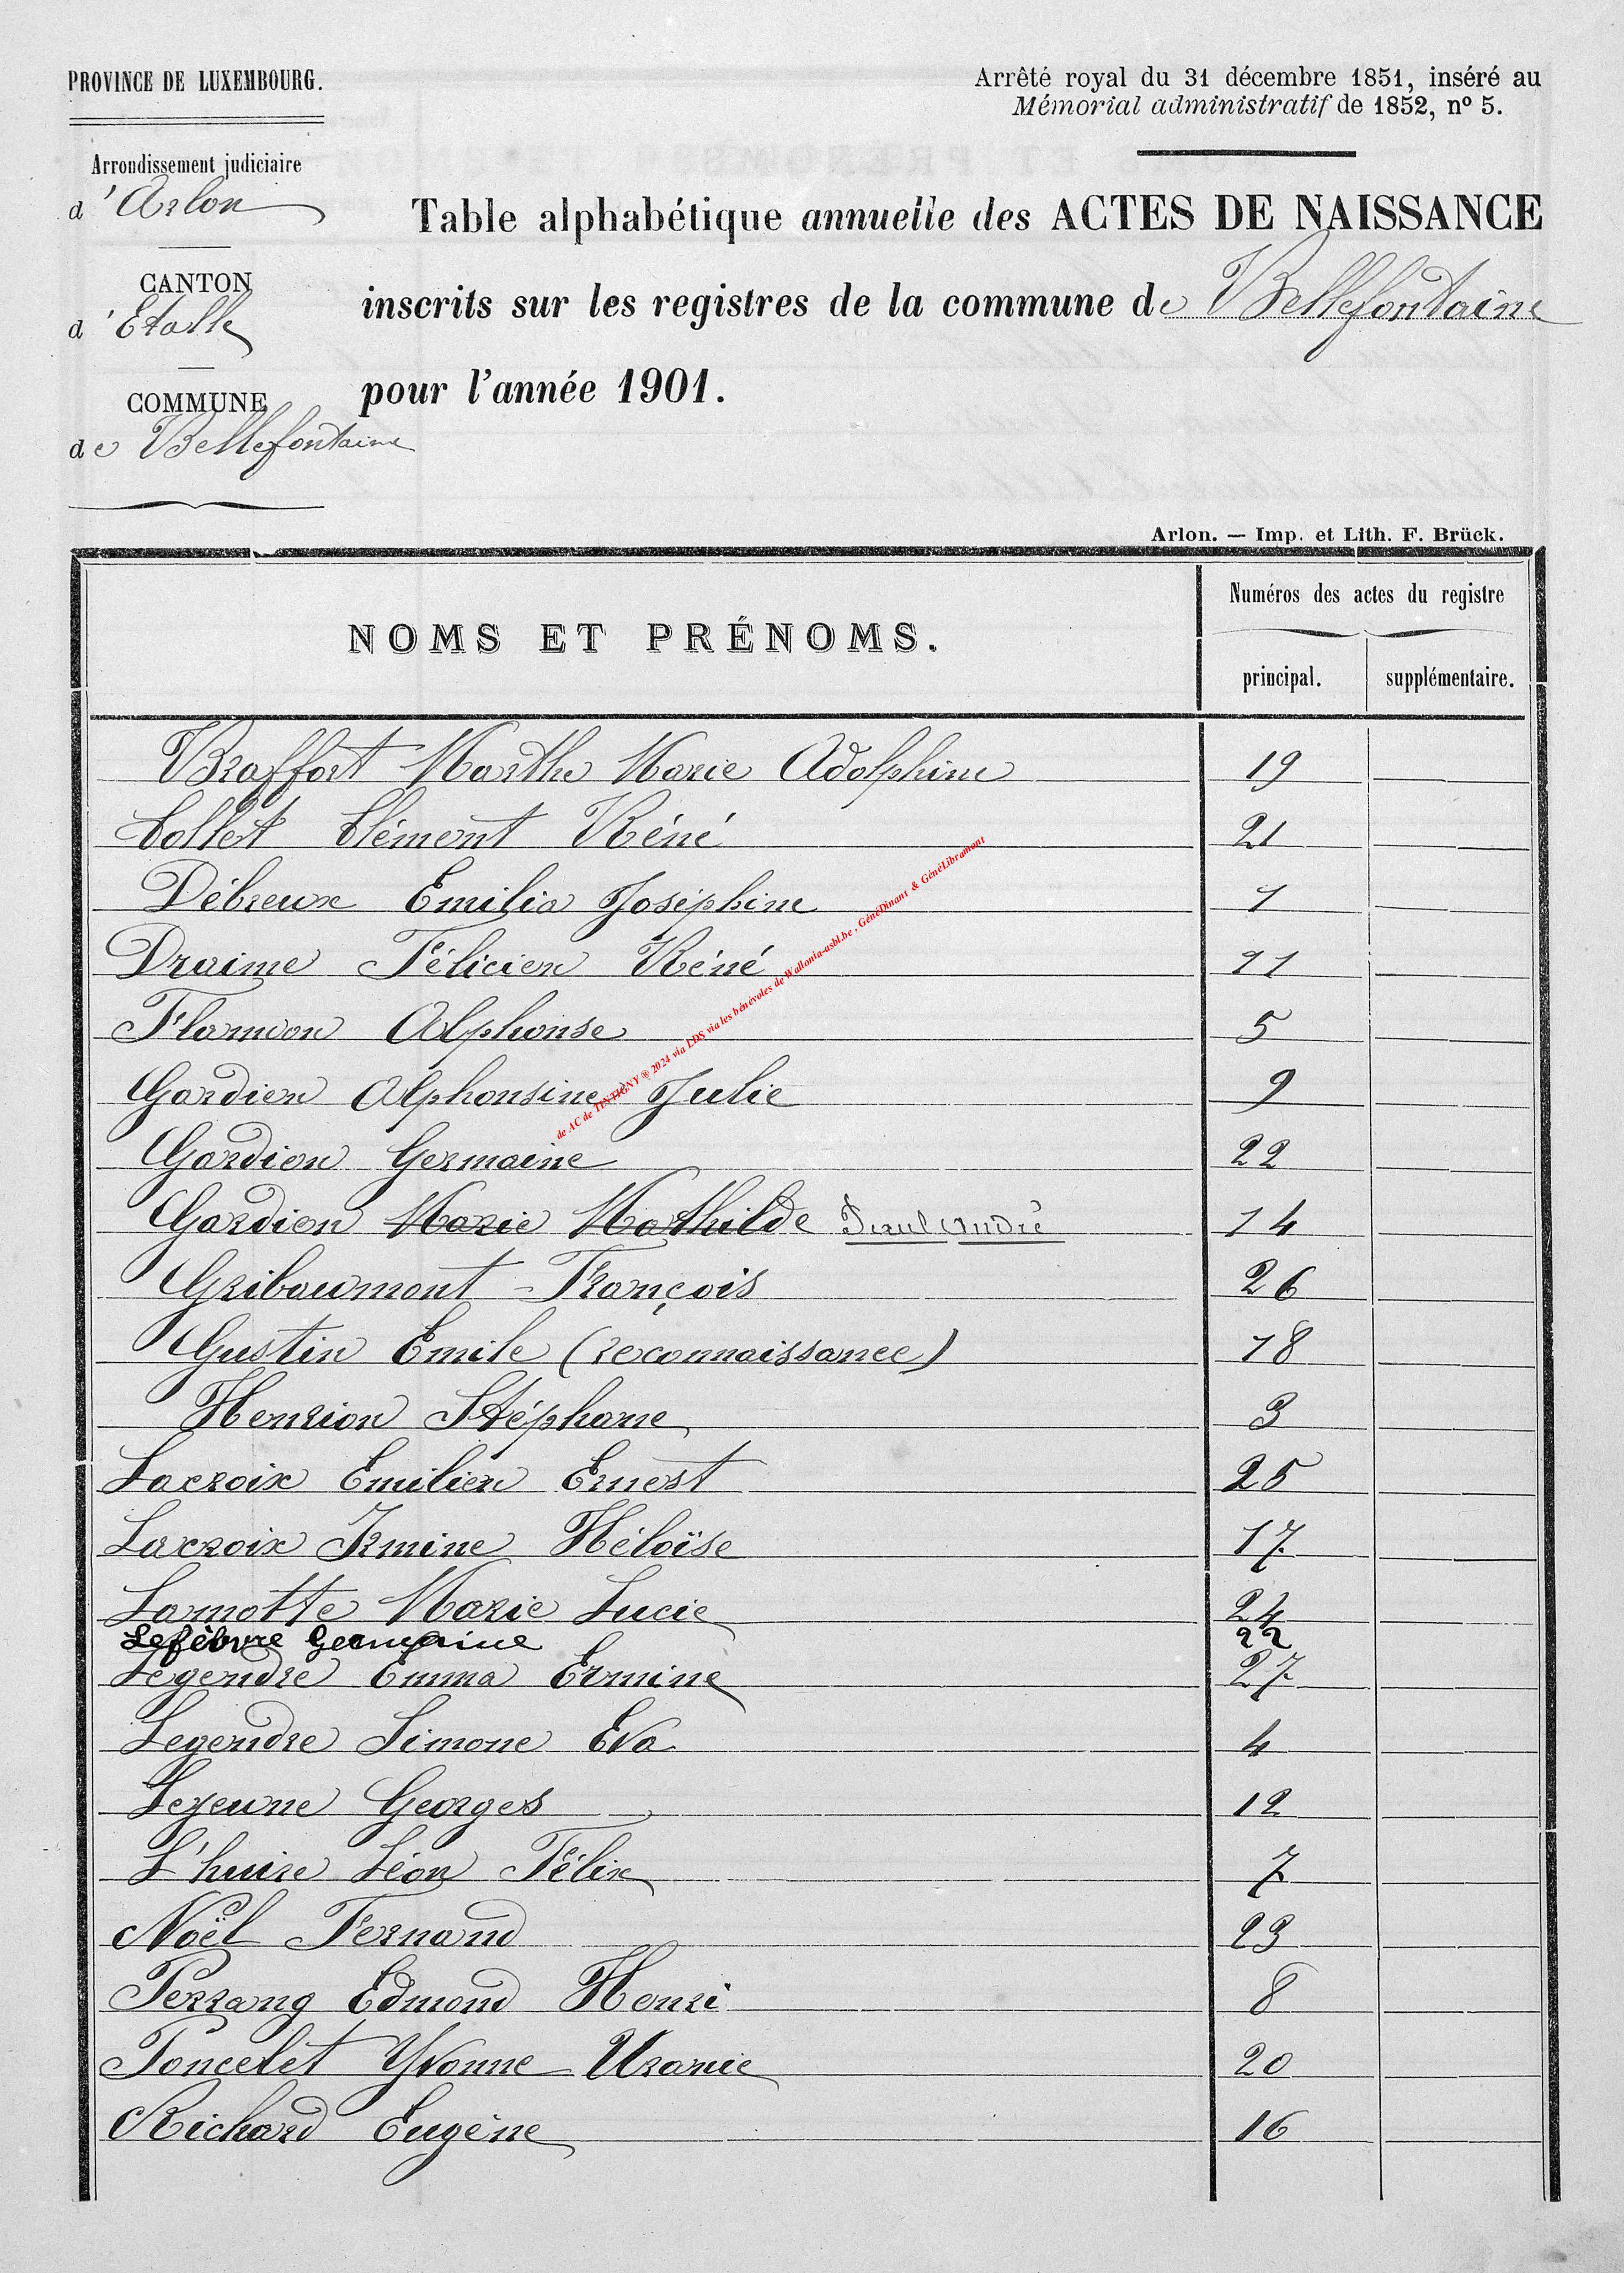 PROVINCE DE LUXEMBOURG.
Arrêté royal du 31 décembre 1851, inséré au
Mémorial administratif de 1852, nº 5.
Arrondissement judiciaire
d'Arlon
CANTON
d'Etalle
COMMUNE
de Bellefontaine
Table alphabétique annuelle des ACTES DE NAISSANCE
inscrits sur les registres de la commune de Bellefontaine
pour l'année 1901.
Arlon. — Imp. et Lith. F. Brück.
NOMS ET PRÉNOMS.
Numéros des actes du registre
principal. supplémentaire.
Braffort Marthe Marie Adolphine 19
Collet Clément Réné 21
Débreux Emilia Joséphine 1
Draime Félicien Réné 11
Flamion Alphonse 5
Gardien Alphonsine Julie 9
Gardien Germaine 22
Gardien Marie Mathilde Paul André 14
Gribaumont François 26
Gustin Emile (reconnaissance) 18
Henrion Stéphane 3
Lacroix Emilien Ernest 25
Lacroix Irmine Héloïse 17
Lamotte Marie Lucie 24
Lefèbvre Germaine 22
Legendre Emma Ermine 27
Legendre Simone Eva 4
Lejeune Georges 12
L'huire Léon Félix 7
Noël Fernand 23
Perrang Edmond Henri 8
Poncelet Yvonne Uranie 20
Richard Eugène 16
de AC de TINTIGNY ® 2024 via LDS via les bénévoles de Wallonia-asbl.be , GénéDinant & GénéLibramont